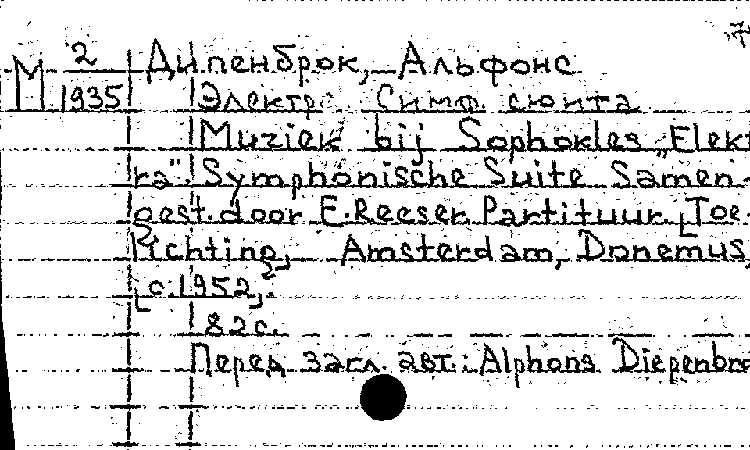 М 2 Дипенброк, Альфонс
1935 Электра. Симф. сюита
Muziek bij Sophokles „Elek
ra". Symphonische Suite. Samen-
gest. door E. Reeser. Partituur. [Toe-
lichting]. Amsterdam, Donemus,
[c. 1952].
82 с.
Перед загл. авт.: Alphons Diepenbro